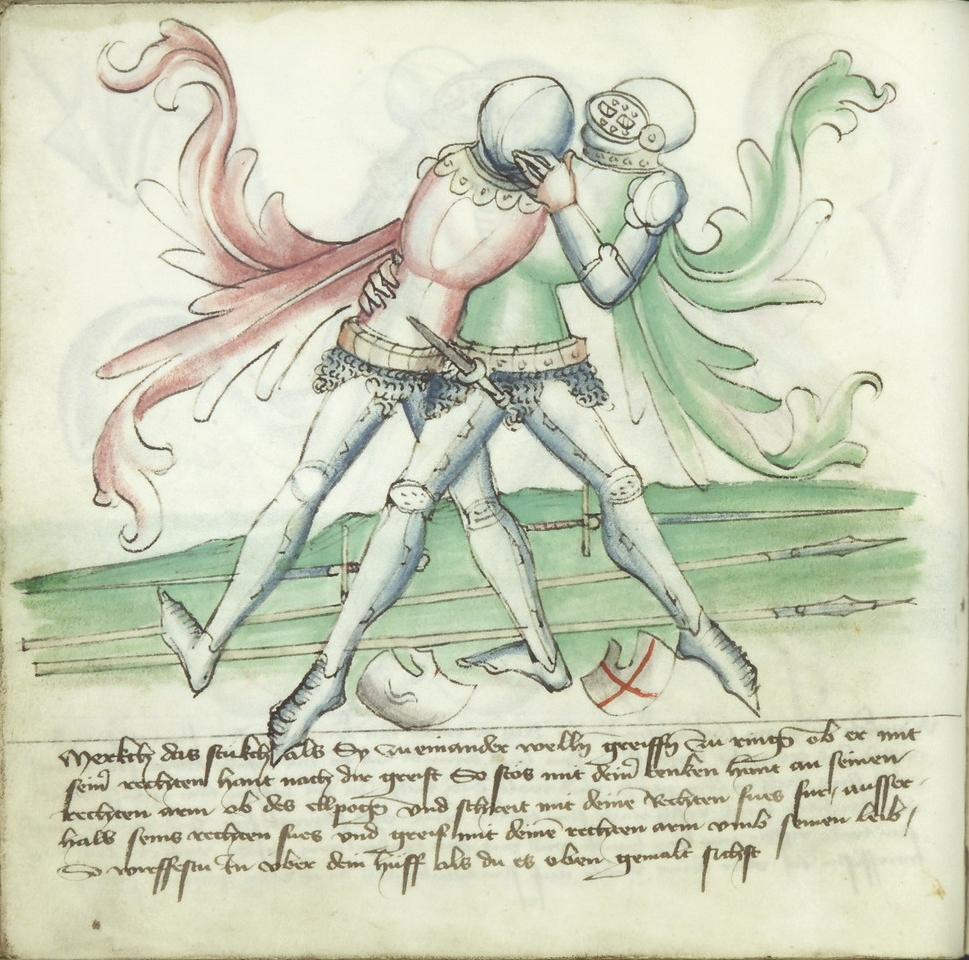 Merkch das stukch als Sy zu einander wellñ greiffñ zu ringñ ob er mit
seiñ rechten hant nach dir greift So stos mit deiñ tenken hant an seinen
rechten arm ob des ellpogñ vnd schreit mit deinē Rechten fues fur ausser-
halb seins rechten fues vnd greif mit deinē rechten arm vmb seinen leib /
So wirffestu in vber dein huff als du es oben gemalt sichst